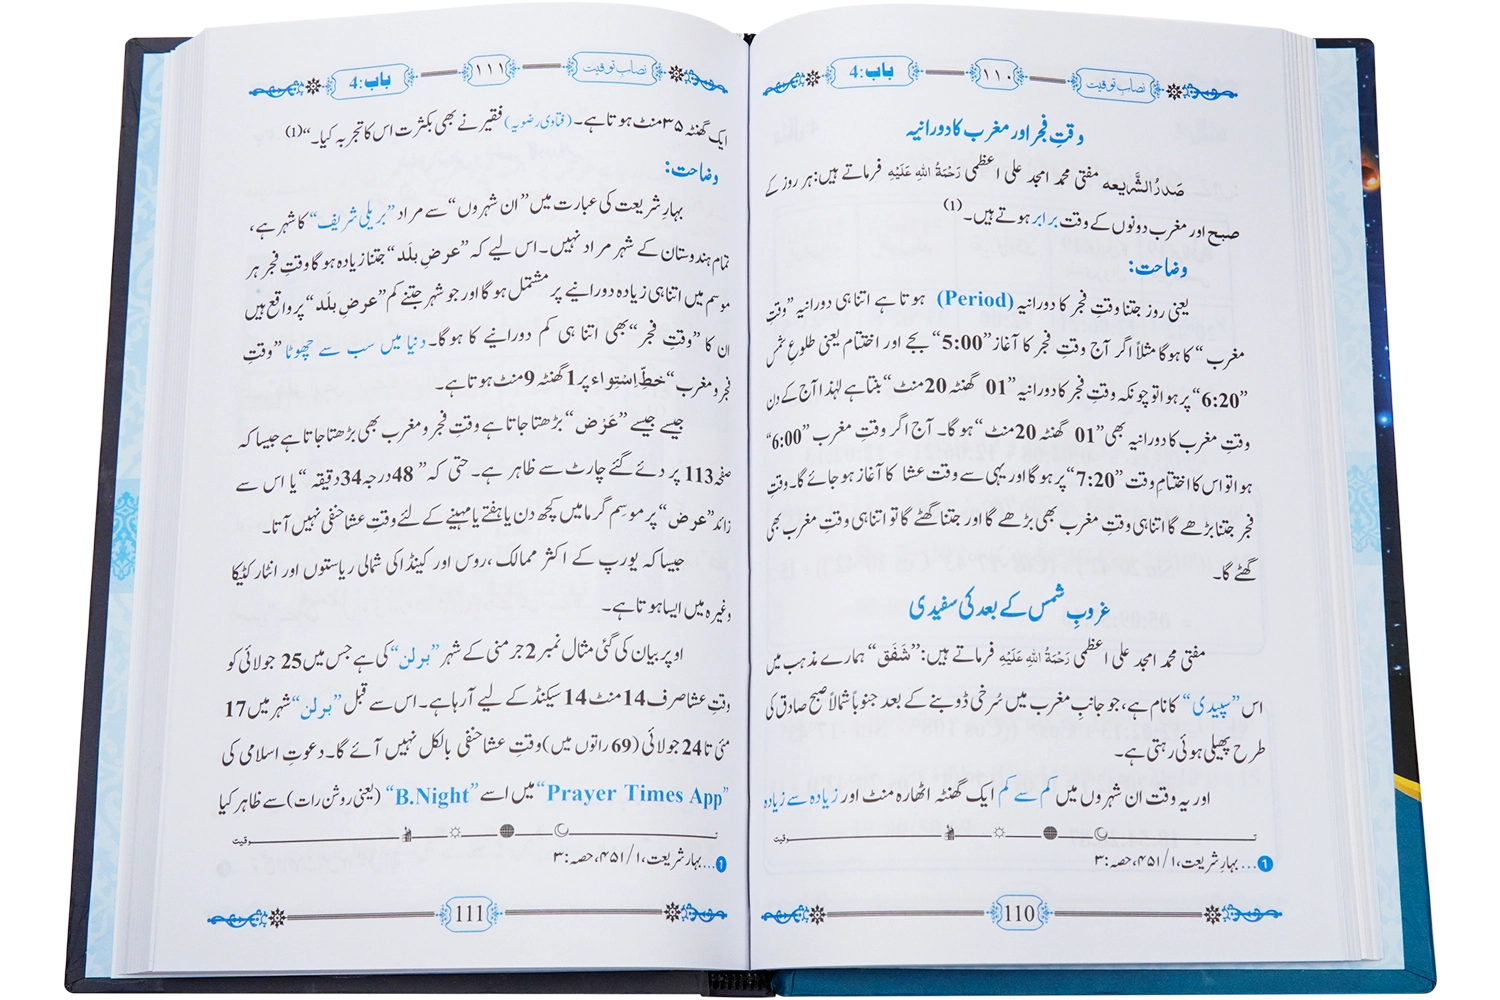 نصابِ توقیت ۱۱۰ باب:4
وقتِ فجر اور مغرب کا دورانیہ
صَدرُ الشَّریعہ مفتی محمد امجد علی اعظمی رَحْمَةُ اللهِ عَلَيْهِ فرماتے ہیں: ہر روز کے
صبح اور مغرب دونوں کے وقت برابر ہوتے ہیں۔(1)
وضاحت:
یعنی روز جتنا وقتِ فجر کا دورانیہ (Period) ہوتا ہے اتنا ہی دورانیہ ”وقتِ
مغرب“ کا ہوگا مثلاً اگر آج وقتِ فجر کا آغاز ”5:00“ بجے اور اختتام یعنی طلوعِ شمس
”6:20“ پر ہوا تو چونکہ وقتِ فجر کا دورانیہ ”01 گھنٹہ 20 منٹ“ بنتا ہے لہٰذا آج کے دن
وقتِ مغرب کا دورانیہ بھی ”01 گھنٹہ 20 منٹ“ ہوگا۔ آج اگر وقتِ مغرب ”6:00“
ہوا تو اس کا اختتامِ وقت ”7:20“ پر ہوگا اور یہی سے وقتِ عشا کا آغاز ہو جائے گا۔ وقتِ
فجر جتنا بڑھے گا اتنا ہی وقتِ مغرب بھی بڑھے گا اور جتنا گھٹے گا تو اتنا ہی وقتِ مغرب بھی
گھٹے گا۔
غروبِ شمس کے بعد کی سفیدی
مفتی محمد امجد علی اعظمی رَحْمَةُ اللهِ عَلَيْهِ فرماتے ہیں: ”شَفَق“ ہمارے مذہب میں
اس ”سپیدی“ کا نام ہے، جو جانبِ مغرب میں سُرخی ڈوبنے کے بعد جنوباً شمالاً صبحِ صادق کی
طرح پھیلی ہوئی رہتی ہے۔
اور یہ وقت ان شہروں میں کم سے کم ایک گھنٹہ اٹھارہ منٹ اور زیادہ سے زیادہ
توقیت
1... بہارِ شریعت، ۱/۴۵۱، حصہ:۳
110
نصابِ توقیت ۱۱۱ باب:4
ایک گھنٹہ ۳۵ منٹ ہوتا ہے۔ (فتاویٰ رضویہ) فقیر نے بھی بکثرت اس کا تجربہ کیا۔“(1)
وضاحت:
بہارِ شریعت کی عبارت میں ”ان شہروں“ سے مراد ”بریلی شریف“ کا شہر ہے،
تمام ہندوستان کے شہر مراد نہیں۔ اس لیے کہ ”عرضِ بلَد“ جتنا زیادہ ہوگا وقتِ فجر ہر
موسم میں اتنا ہی زیادہ دورانیے پر مشتمل ہوگا اور جو شہر جتنے کم ”عرضِ بلَد“ پر واقع ہیں
ان کا ”وقتِ فجر“ بھی اتنا ہی کم دورانیے کا ہوگا۔ دنیا میں سب سے چھوٹا ”وقتِ
فجر و مغرب“ خطِّ اِسْتِواء پر 1 گھنٹہ 9 منٹ ہوتا ہے۔
جیسے جیسے ”عَرْض“ بڑھتا جاتا ہے وقتِ فجر و مغرب بھی بڑھتا جاتا ہے جیسا کہ
صفحہ 113 پر دئے گئے چارٹ سے ظاہر ہے۔ حتی کہ ”48 درجہ 34 دقیقہ“ یا اس سے
زائد ”عرض“ پر موسمِ گرما میں کچھ دن یا ہفتے یا مہینے کے لئے وقتِ عشا حنفی نہیں آتا۔
جیسا کہ یورپ کے اکثر ممالک، روس اور کینڈا کی شمالی ریاستوں اور انٹارکٹیکا
وغیرہ میں ایسا ہوتا ہے۔
اوپر بیان کی گئی مثال نمبر 2 جرمنی کے شہر ”برلن“ کی ہے جس میں 25 جولائی کو
وقتِ عشا صرف 14 منٹ 14 سیکنڈ کے لیے آرہا ہے۔ اس سے قبل ”برلن“ شہر میں 17
مئی تا 24 جولائی (69 راتوں میں) وقتِ عشا حنفی بالکل نہیں آئے گا۔ دعوتِ اسلامی کی
”Prayer Times App“ میں اسے ”B.Night“ (یعنی روشن رات) سے ظاہر کیا
توقیت
1... بہارِ شریعت، ۱/۴۵۱، حصہ:۳
111